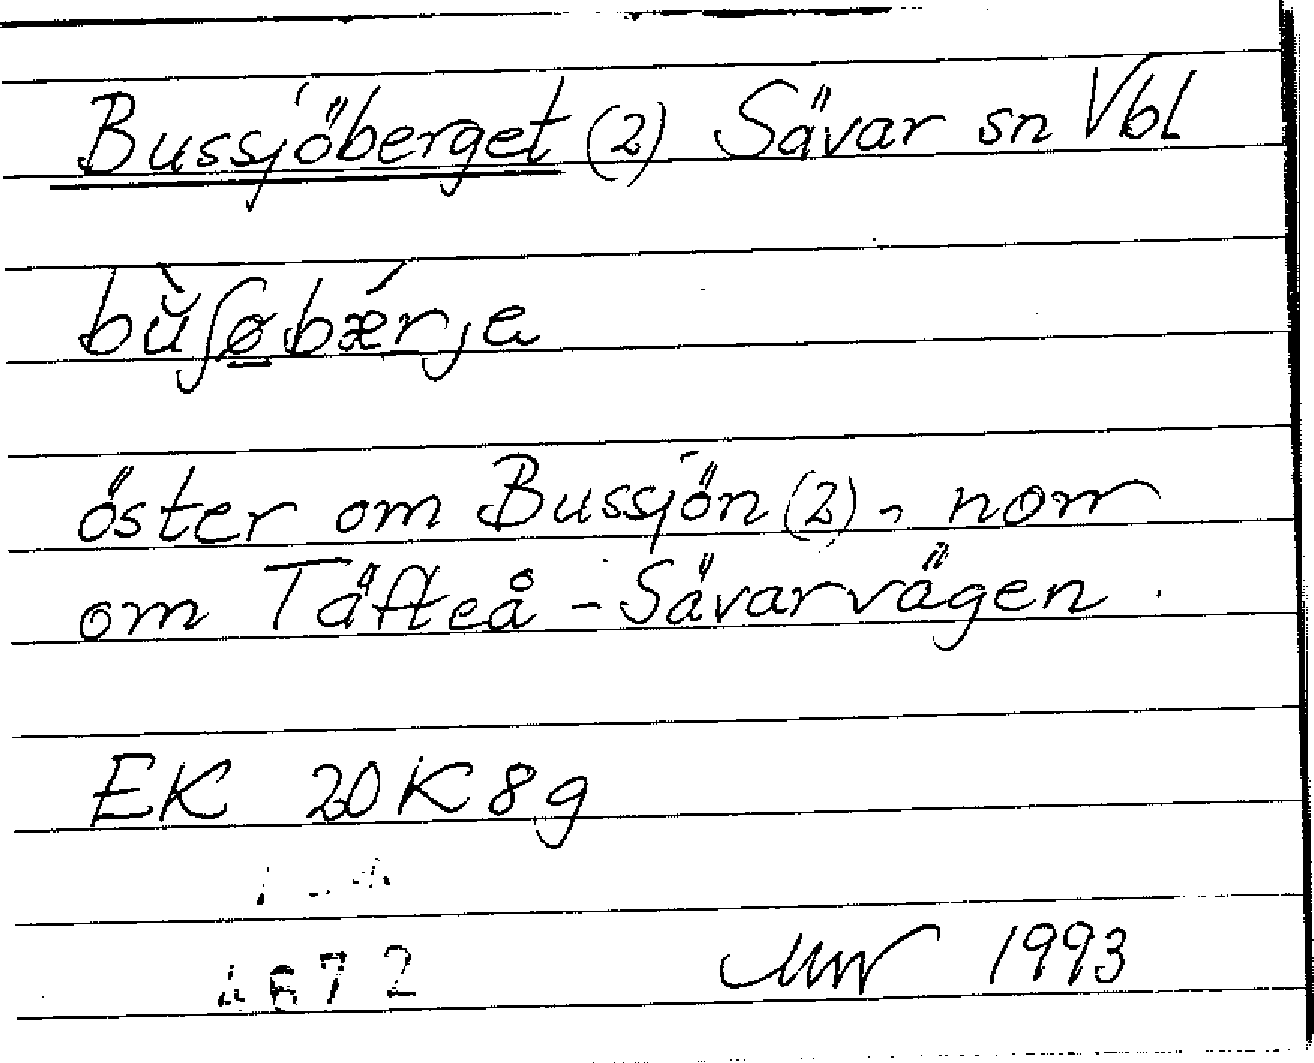 Bussjöberget (2) Sävar sn Vbl
bùʃøbǽrja
öster om Bussjön (2), norr
om Täfteå - Sävarvägen.
EK 20K8g
1993